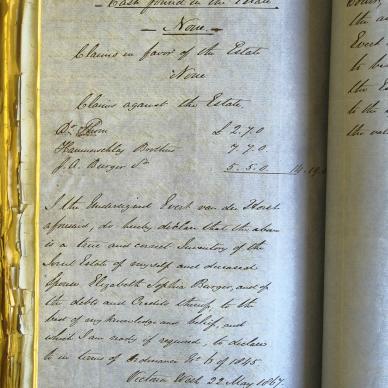 Cash found in the Estate
— None —
Claims in favor of the Estate
None
Claims against the Estate
Dr £ 2.7.0
Hammerschlag Brothers 7.7.0
J. A. Burger Sr 5.5.0 14.19.0
I the Undersigned Evert van der Horst
aforesaid, do hereby declare that the above
is a true and correct Inventory of the
Joint Estate of myself and deceased
Spouse Elizabeth Sophia Burger, and of
the debts and Credits thereof, to the
best of my knowledge and belief, and
which I am ready if required, to declare
to in terms of Ordinance No 6 of 1845
Victoria West 22 May 1867
the
Evert
to b
the E
to the
the va